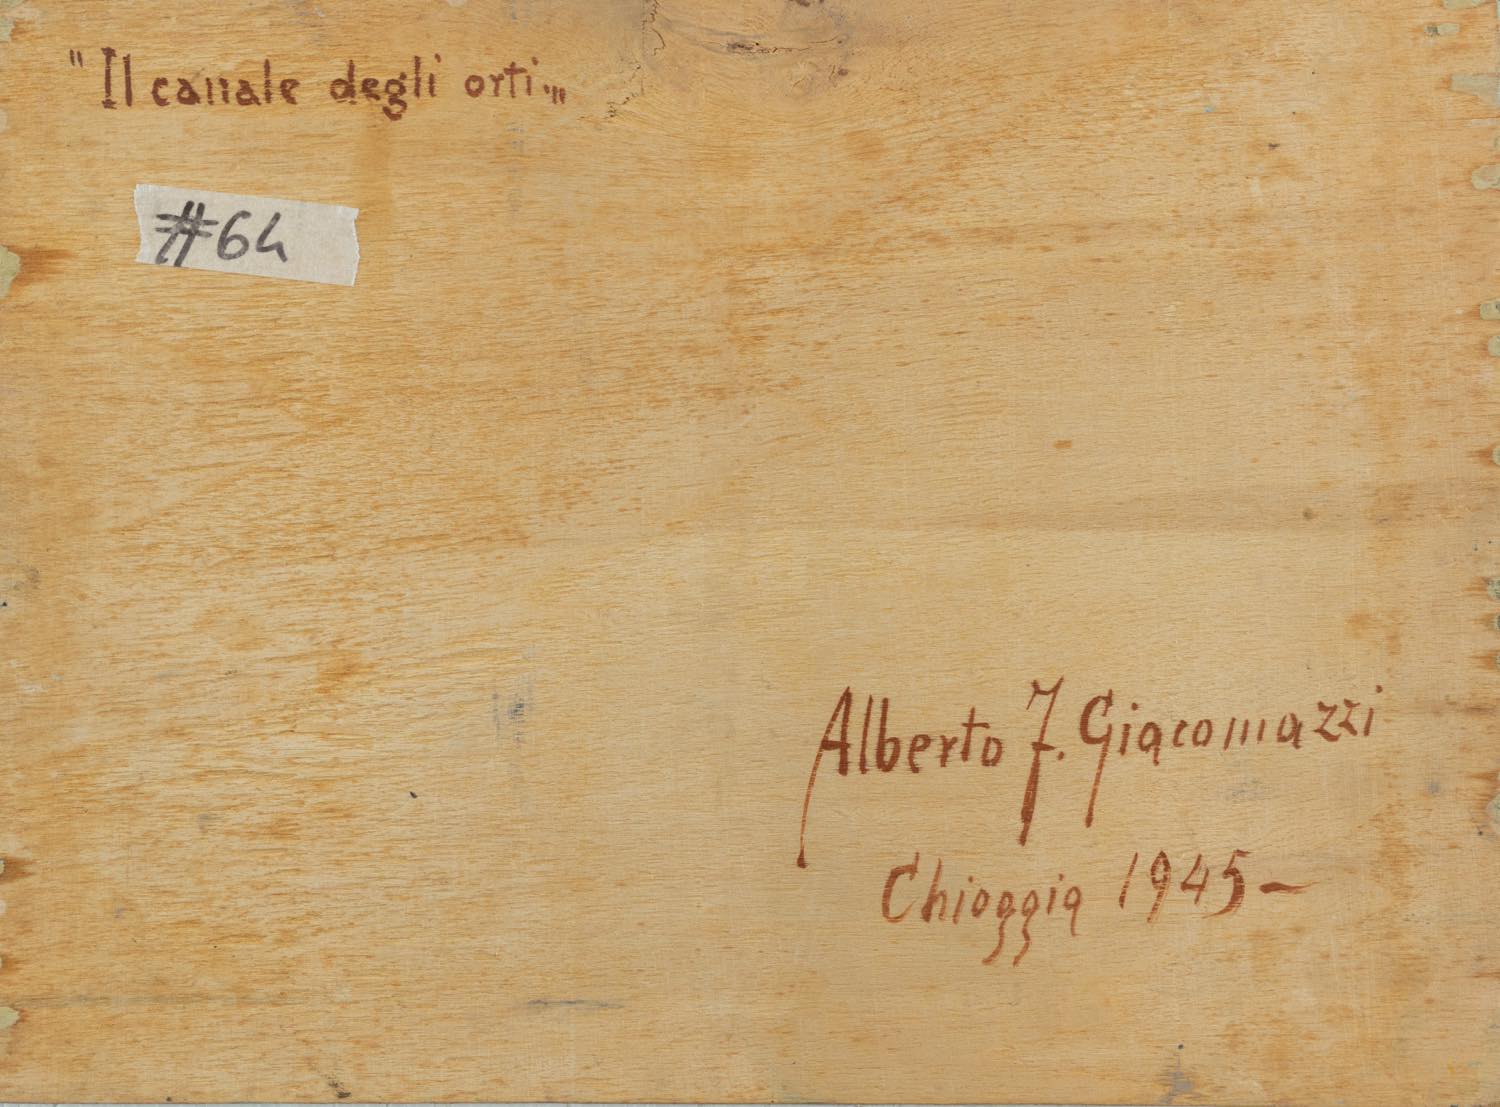 "Il canale degli orti„
#64
Alberto J. Giacomazzi
Chioggia 1945-